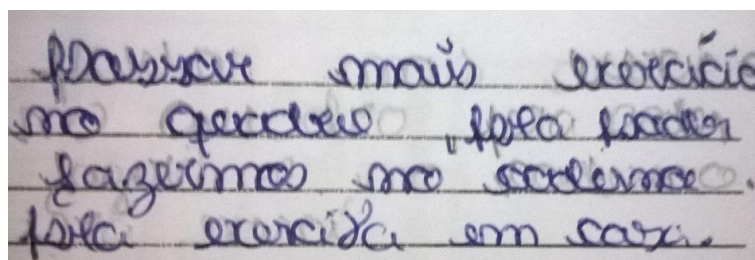 passar mais exercicio
no qeadro, pra poder
fazermos no caderno.
pra exercita em casa.